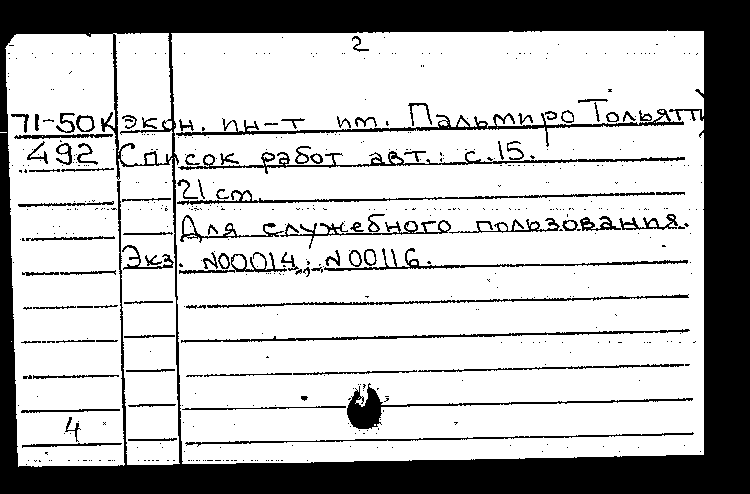 2
71-50К экон. ин-т им. Пальмиро Тольятти
492 Список работ авт.: с.15.
21 см.
Для служебного пользования.
Экз. N00014; N00116.
4